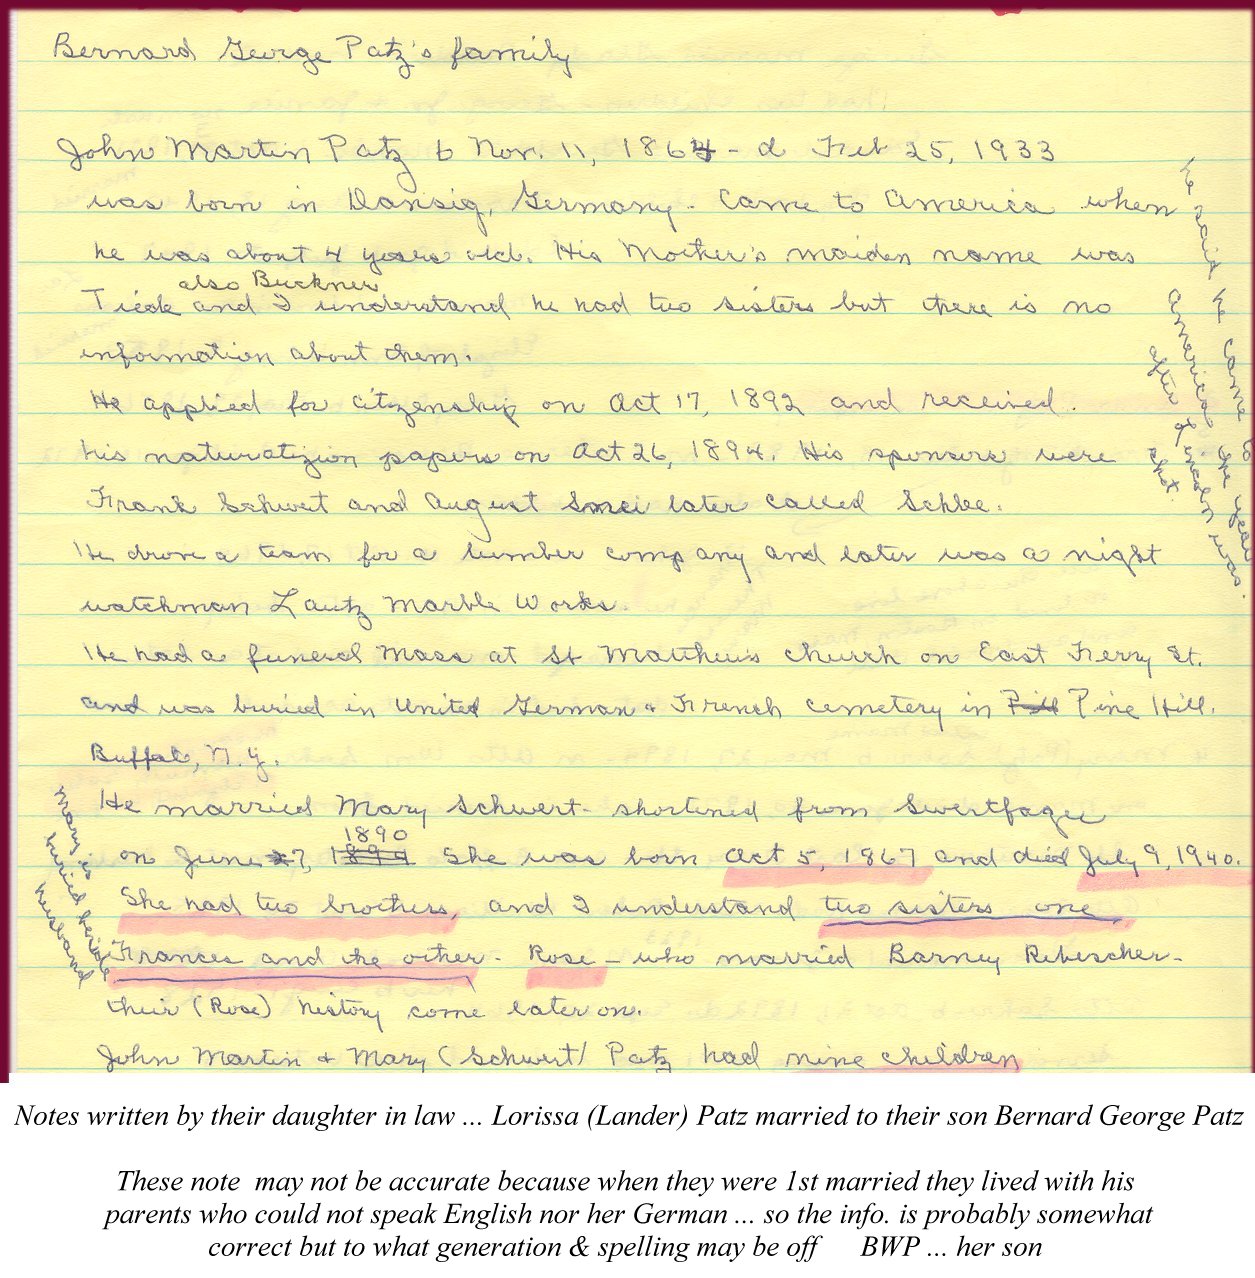 Bernard George Patz's family
John Martin Patz b Nov. 11, 1864 - d Feb 25, 1933
was born in Dansig, Germany. Came to America when
he was about 4 years old. His Mother's maiden name was
also Buckner
Tiede and I understand he had two sisters but there is no
information about them.
He applied for citizenship on Oct 17, 1892 and received.
his naturatizion papers on Oct 26, 1894. His sponsors were
Frank Schwert and August Smei later called Schlee.
He drove a team for a lumber company and later was a night
watchman Lautz Marble Works.
He had a funeral Mass at St Matthews church on East Ferry St.
and was buried in United German & French cemetery in Pine Hill.
Buffalo, N.Y.
He married Mary Schwert - shortened from Swertfager
1890
on June 7, She was born Oct 5, 1867 and died July 9, 1940.
She had two brothers, and I understand two sisters one
Frances and the other - Rose - who married Barney Rebescher -
their (Rose) history come later on.
John Martin & Mary (Schwert) Patz had nine children
he said he came to
America the year
after Lincoln was
shot.
Mary is
buried beside
husband
Notes written by their daughter in law ... Lorissa (Lander) Patz married to their son Bernard George Patz
These note may not be accurate because when they were 1st married they lived with his
parents who could not speak English nor her German ... so the info. is probably somewhat
correct but to what generation & spelling may be off BWP ... her son